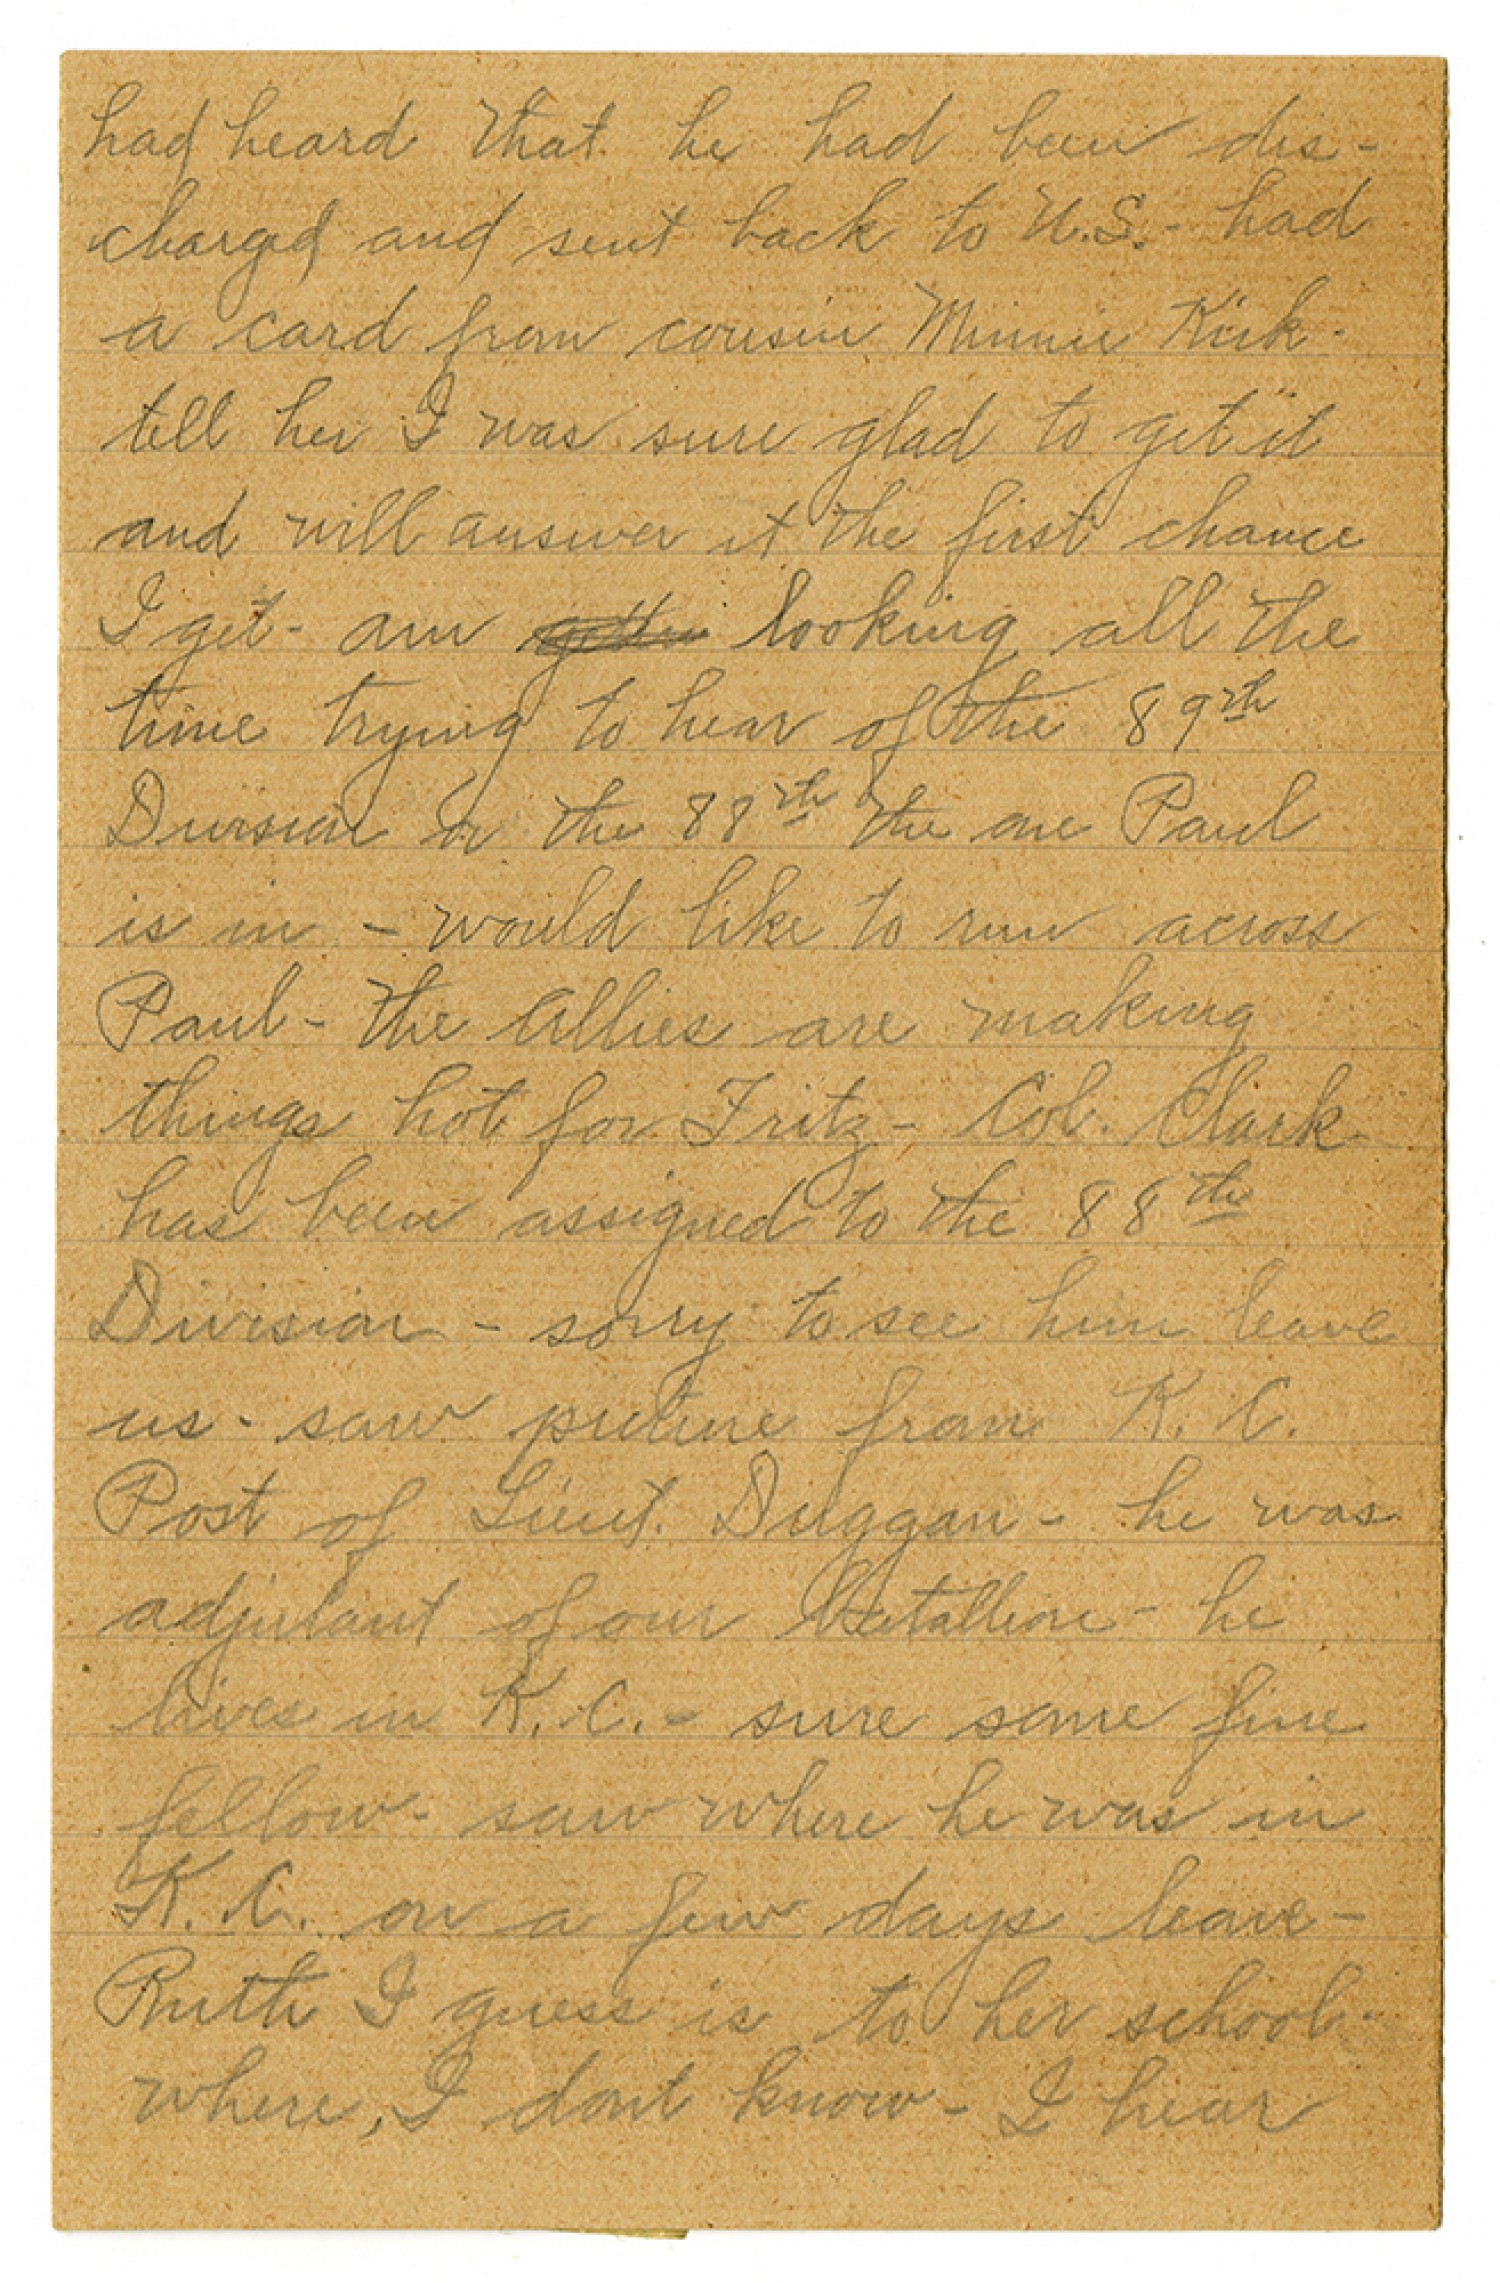 had heard that he had been dis-
charged and sent back to U.S. - had
a card from cousin Minnie Kirk -
tell her I was sure glad to get it
and will answer it the first chance
I get - am looking all the
time trying to hear of the 89th
Division or the 88th the one Paul
is in - would like to run across
Paul - the Allies are making
things hot for Fritz - Col. Clark
has been assigned to the 88th
Division - sorry to see him leave
us - saw picture from K. C.
Post of Lieut. Duggan - he was
adjutant of our Batallion - he
lives in K. C. - sure some fine
fellow - saw where he was in
K. C. on a few days leave -
Ruth I guess is to her school -
where, I dont know - I hear